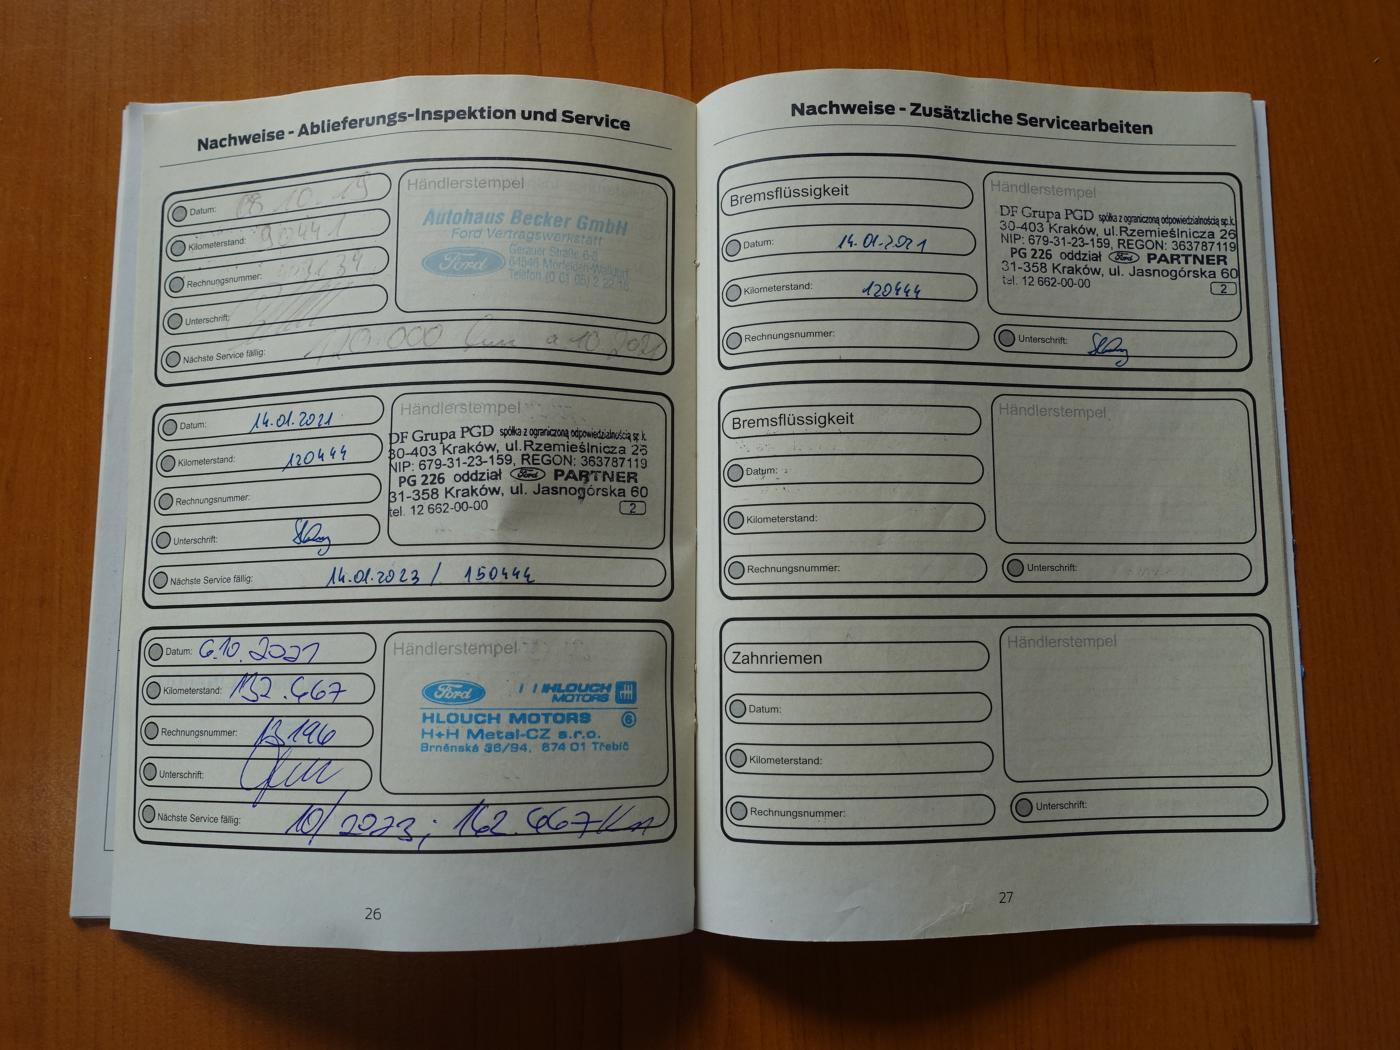 Nachweise - Ablieferungs-Inspektion und Service
Datum: 08.10.19
Kilometerstand: 90441
Rechnungsnummer:
Unterschrift:
Nächste Service fällig: 120.000 10.2021
Händlerstempel
Autohaus Becker GmbH
Ford Vertragswerkstatt
Ford
Gerauer Straße 6-8
64546 Mörfelden-Walldorf
Telefon (0 61 05) 2 22 16
Datum: 14.01.2021
Kilometerstand: 120444
Rechnungsnummer:
Unterschrift:
Nächste Service fällig: 14.01.2023 / 150444
Händlerstempel
DF Grupa PGD spółka z ograniczoną odpowiedzialnością sp. k.
30-403 Kraków, ul.Rzemieślnicza 26
NIP: 679-31-23-159, REGON: 363787119
PG 226 oddział Ford PARTNER
31-358 Kraków, ul. Jasnogórska 60
tel. 12 662-00-00 2
Datum: 6.10.2021
Kilometerstand: 132.667
Rechnungsnummer: 13196
Unterschrift:
Nächste Service fällig: 10/2023; 162.667 Km
Händlerstempel
Ford HLOUCH
MOTORS
HLOUCH MOTORS 6
H+H Metal-CZ s.r.o.
Brněnská 36/94, 674 01 Třebíč
26
Nachweise - Zusätzliche Servicearbeiten
Bremsflüssigkeit
Datum: 14.01.2021
Kilometerstand: 120444
Rechnungsnummer:
Händlerstempel
DF Grupa PGD spółka z ograniczoną odpowiedzialnością sp. k.
30-403 Kraków, ul.Rzemieślnicza 26
NIP: 679-31-23-159, REGON: 363787119
PG 226 oddział Ford PARTNER
31-358 Kraków, ul. Jasnogórska 60
tel. 12 662-00-00 2
Unterschrift:
Bremsflüssigkeit
Datum:
Kilometerstand:
Rechnungsnummer:
Händlerstempel
Unterschrift:
Zahnriemen
Datum:
Kilometerstand:
Rechnungsnummer:
Händlerstempel
Unterschrift:
27